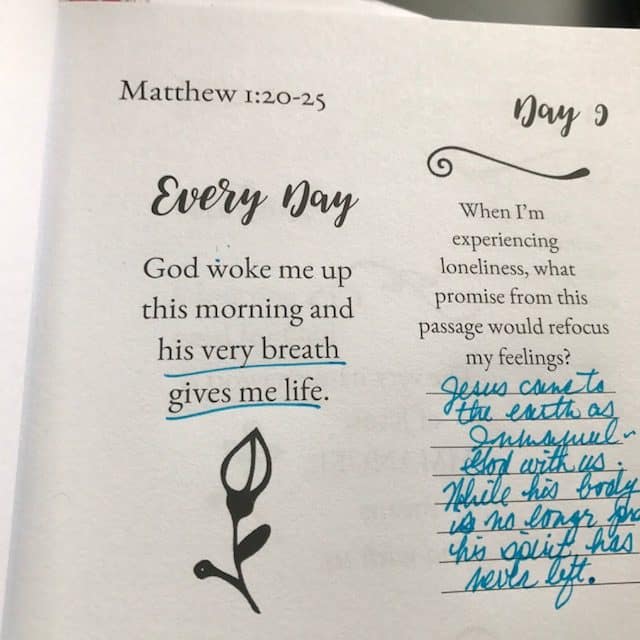 Matthew 1:20-25
Every Day
God woke me up
this morning and
his very breath
gives me life.
Day 9
When I'm
experiencing
loneliness, what
promise from this
passage would refocus
my feelings?
Jesus came to
the earth as
Immanuel-
God with us.
While his body
is no longr
his spirit has
never left.